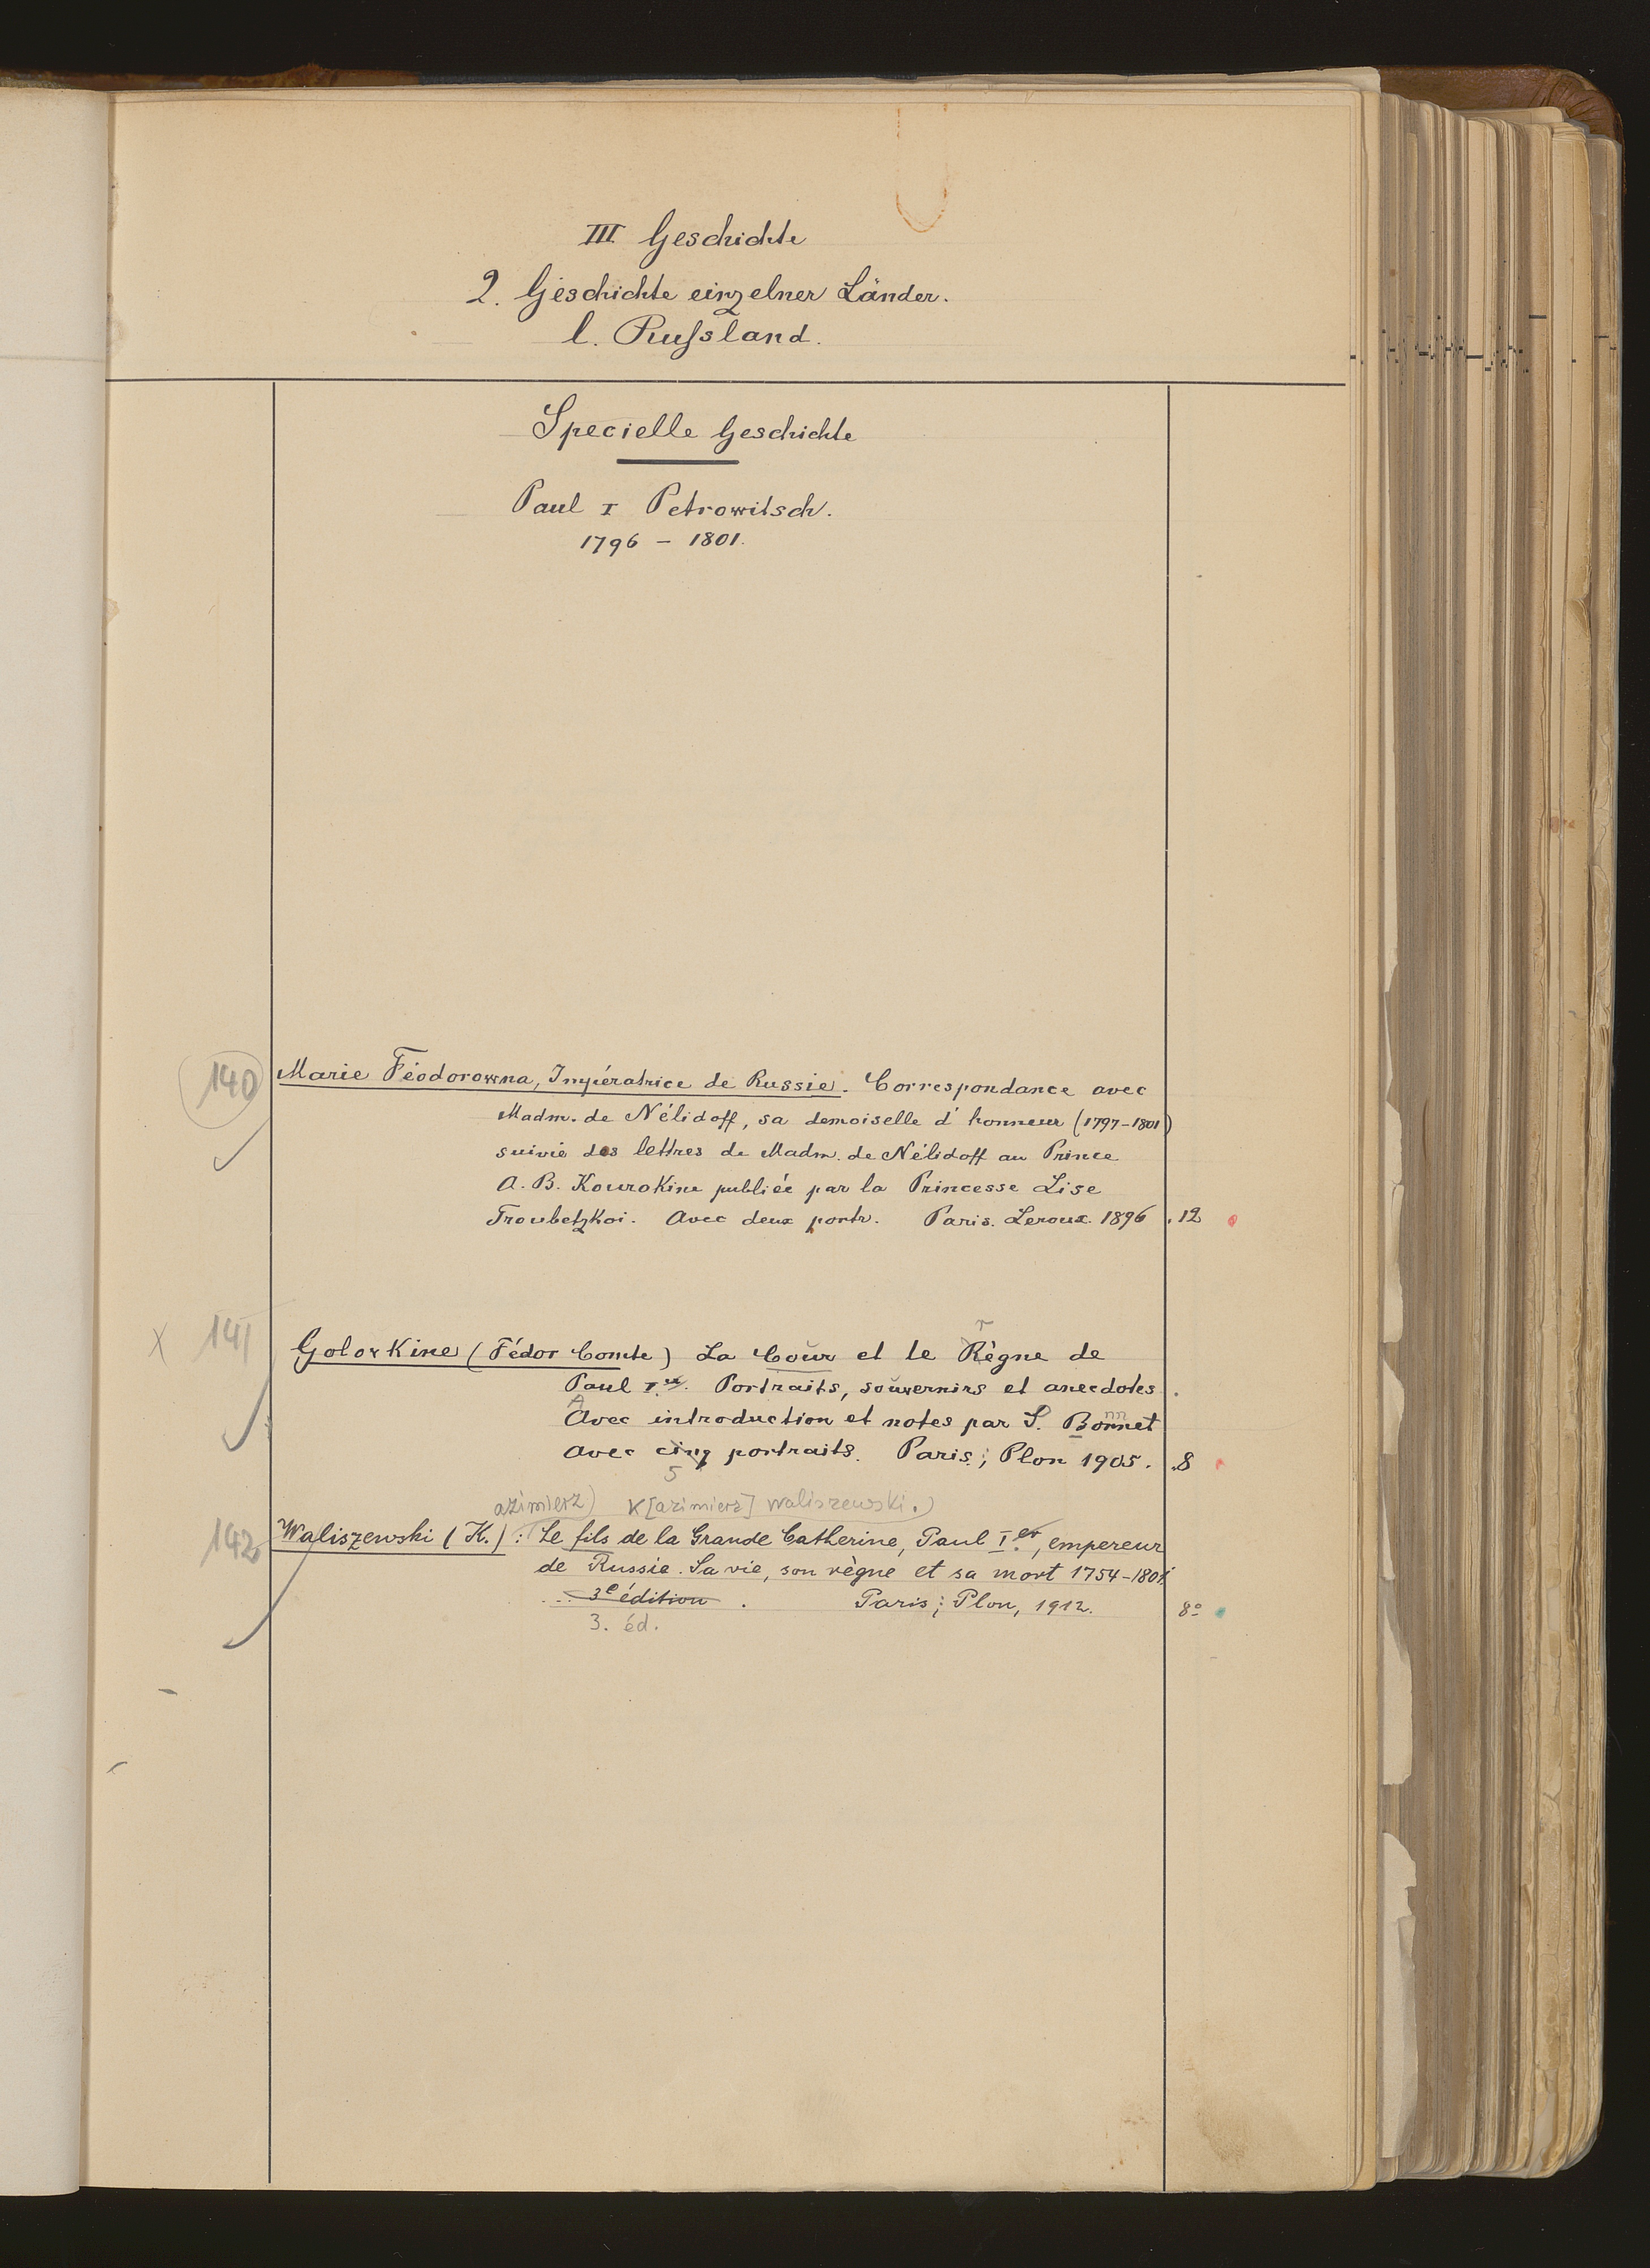 III Geschichte
2. Geschichte einzelner Länder.
l. Russland.
Specielle Geschichte
Paul I Petrowitsch.
1796 – 1801.
140 Marie Féodorowna, Impératrice de Russie. Correspondance avec
Madm. de Nélidoff, sa demoiselle d'honneur (1797–1801)
suivie des lettres de Madm. de Nélidoff au Prince
A. B. Kourakine publiée par la Princesse Lise
Troubetzkoi. Avec deux portr. Paris. Leroux. 1896 . 12
r
X 141 Golovkine (Fédor Comte) La Cour et le Règne de
Paul I.er Portraits, souvernirs et anecdotes.
A nn
Avec introduction et notes par S. Bonnet
avec cinq portraits. Paris; Plon 1905. .8
5
azimierz) K[azimierz] Waliszewski.)
142 Waliszewski (K.): Le fils de la Grande Catherine, Paul I.er, empereur
de Russie. Sa vie, son règne et sa mort 1754–1801.
3e édition . Paris; Plon, 1912. 8°
3. éd.